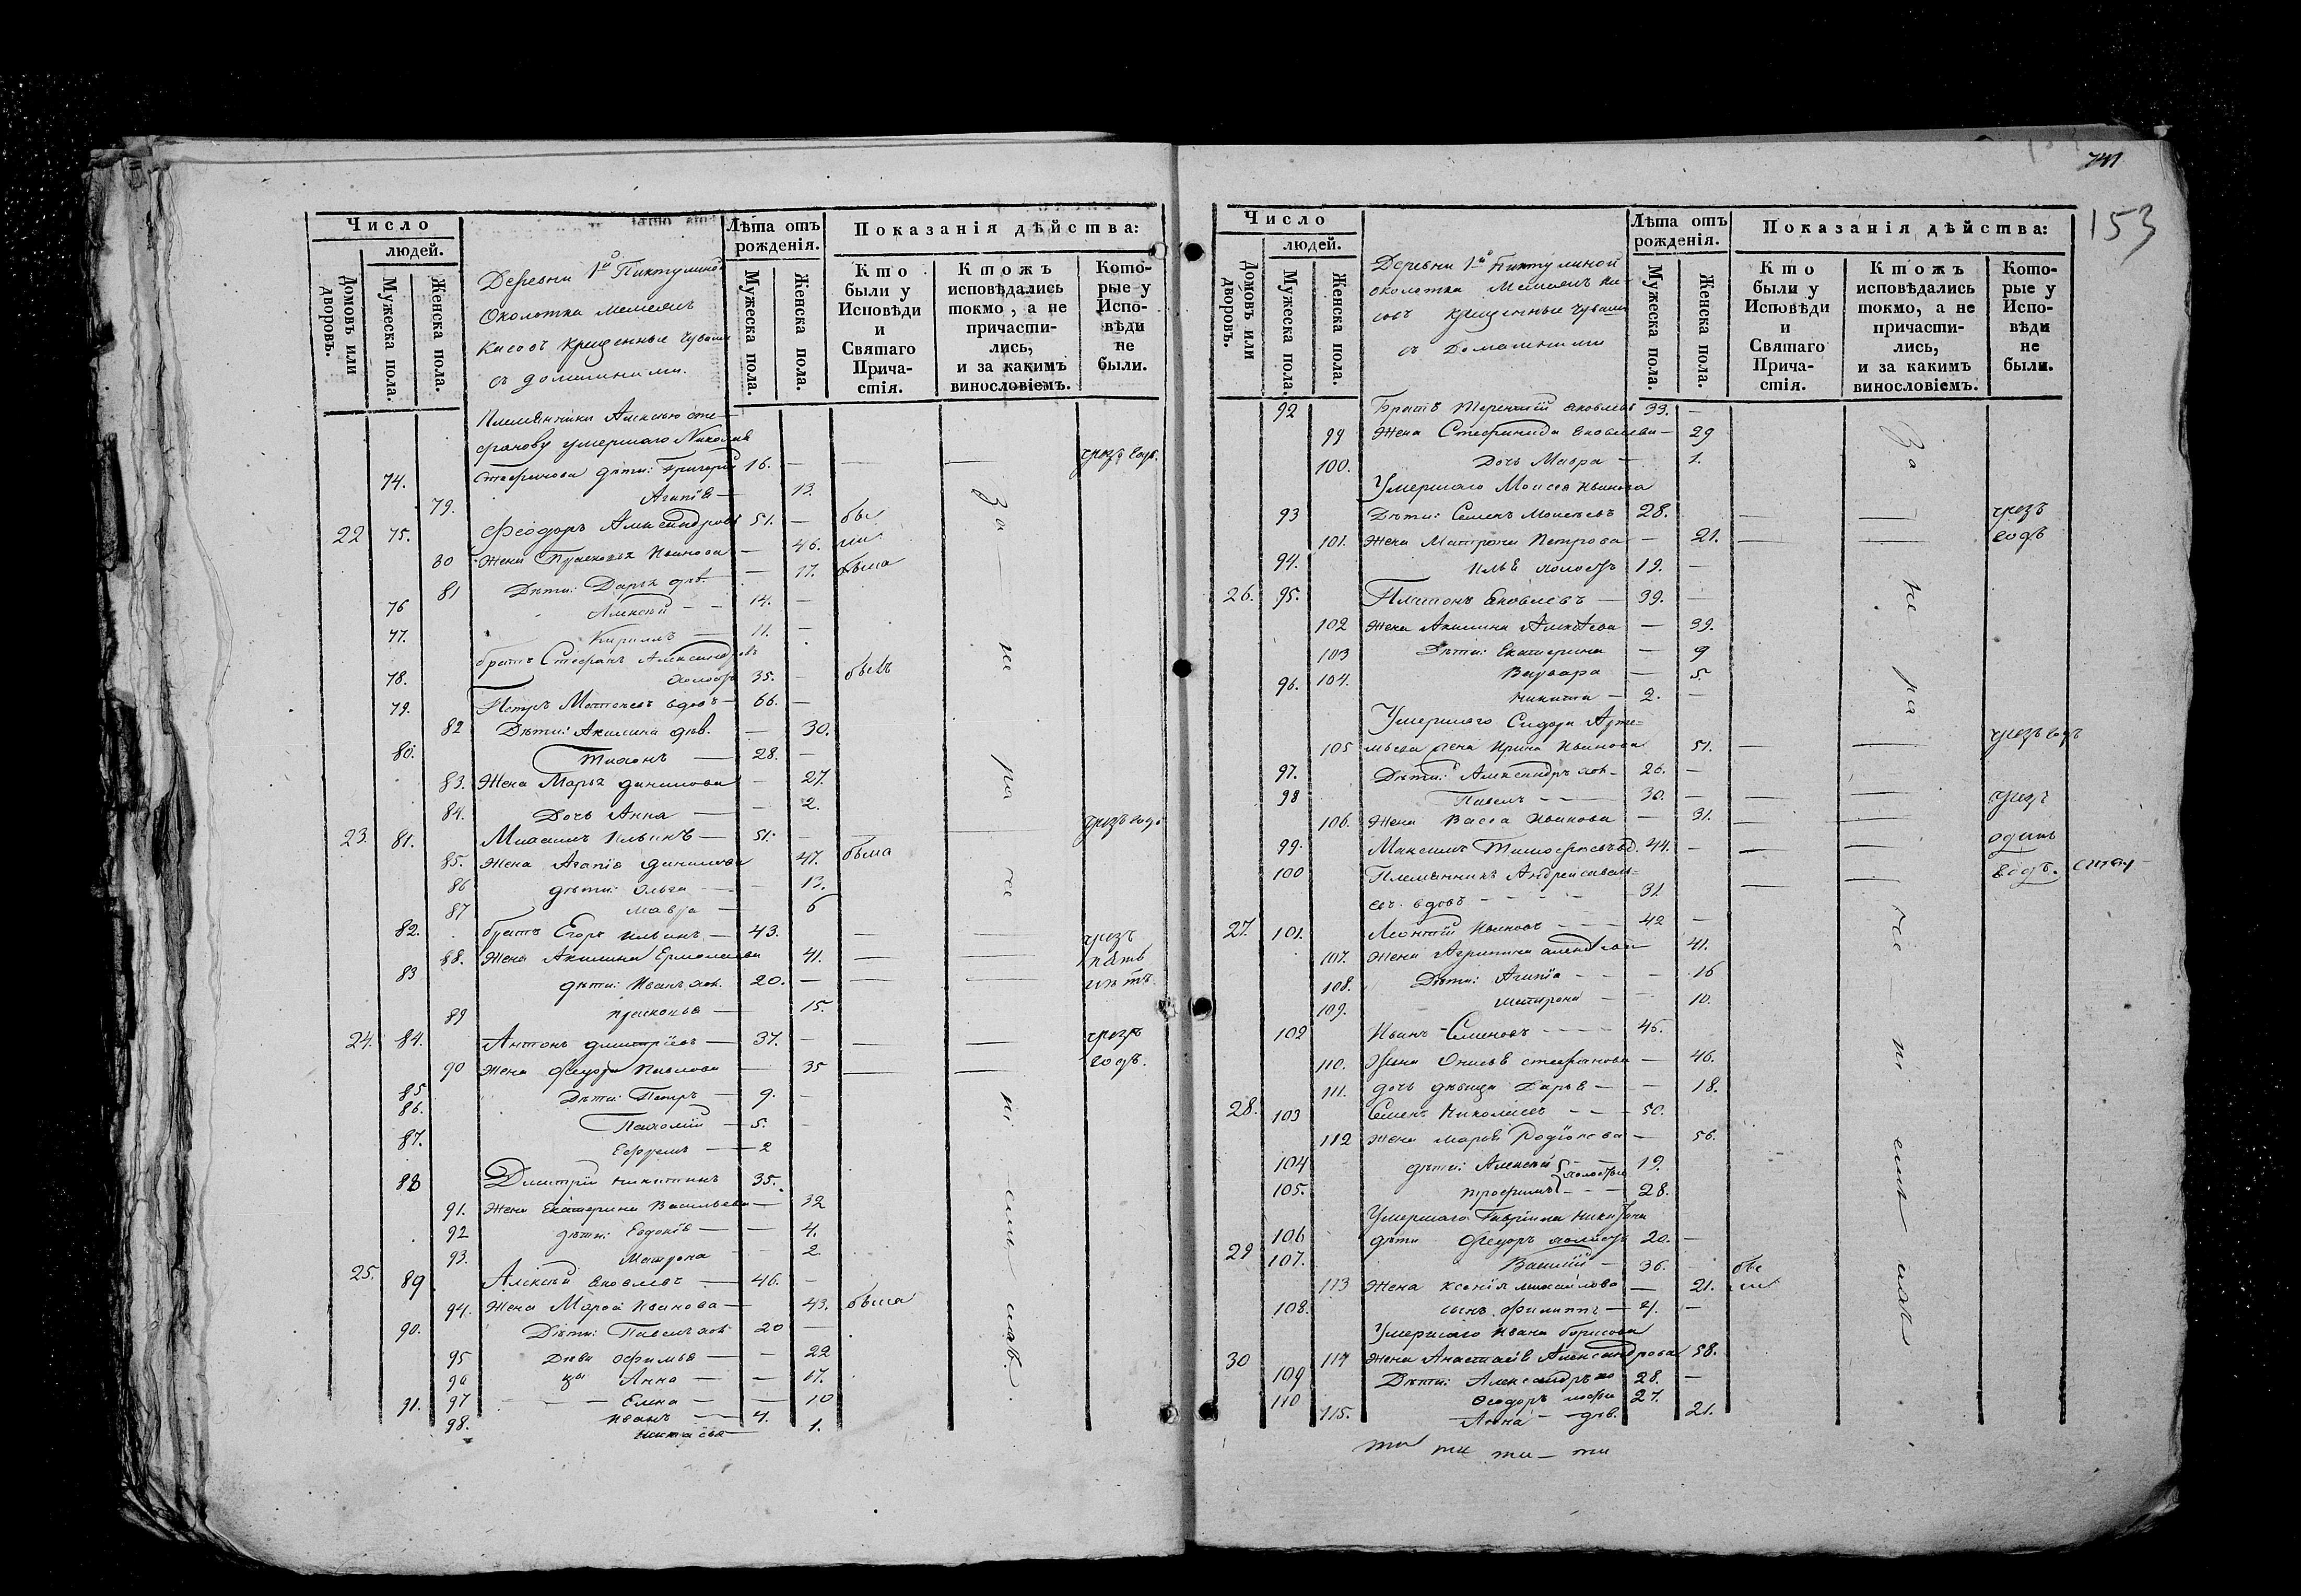 Число
людей.
Домовъ или дворовъ.
Мужеска пола.
Женска пола.
Деревни 1й Пиктулиной
Околотка
касовъ крещенные Чуваши
съ домашними.
Лѣта отъ рожденія.
Мужеска пола.
Женска пола.
Показанія дѣйства:
Кто были у Исповѣди и Святаго Прича-стія.
Ктожъ исповѣдались токмо, а не причасти-лись, и за какимъ винословіемъ.
Кото-рые у Испо-вѣди не были.
Племянники Алексѣю Сте-
фанову умершаго Николая
74. Стефанова дѣти: Григорій 16. — — — чрезъ годъ.
79. Агапія — 13.
22 75. Феодоръ Александровъ 51. — бы
80 Жена Прасковья Иванова — 46. ли
81 Дѣти: Дарья дѣв. — 17. была
76 Алексѣй — — 14. —
77. Кириллъ — 11. —
братъ Стефанъ Александровъ
78. холостъ 35. — былъ
79. Петръ Матвеевъ вдовъ — 66. —
82 Дѣти: Акилина дѣв. — 30.
80. Тихонъ — 28. —
83. Жена Марья Данилова — 27.
84. Дочь Анна — — 2.
23. 81. Михаилъ Ильинъ — 51. — — — чрезъ годъ
85. Жена Агапія Данилова 47. была
86 дѣти: Ольга — — 13.
87 Мавра — 6
82. братъ Егоръ Ильинъ — 43. — — чрезъ
88. Жена Акилина Ермолаева 41. — — пять
83 дѣти: Иванъ хол. 20. — — — лѣтъ
89 Прасковья — 15.
24. 84. Антонъ Дмитріевъ — 37. — — — чрезъ
90 Жена Федора Павлова — 35 — — годъ.
85 Дѣти: Петръ — 9. —
86. Пахомій — 5. —
87. Ефремъ — 2
88 Дмитрій Никитинъ 35.
91. Жена Екатерина Васильева — 32
92 дѣти: Евдокія — — 4.
93. Матрона — 2.
25. 89 Алексѣй Яковлевъ — 46. —
94. Жена Марѳа Иванова — 43. была
90. Дѣти: Павелъ хол. 20 —
95 Дѣви Офимья — — 22
96 цы Анна — — 17.
97 — — — Елена — — 10
91. Иванъ — — 4.
98. 1.
За — не — ра — че — ні — емъ
741
153
Число
людей.
Домовъ или дворовъ.
Мужеска пола.
Женска пола.
Деревни 1й Пиктулиной
околотка
совъ крещенные Чуваши
съ домашними
Лѣта отъ рожденія.
Мужеска пола.
Женска пола.
Показанія дѣйства:
Кто были у Исповѣди и Святаго Прича-стія.
Ктожъ исповѣдались токмо, а не причасти-лись, и за какимъ винословіемъ.
Кото-рые у Испо-вѣди не были.
92 Братъ Терентій Яковлевъ 33. —
99 Жена Стефанида Яковлева — 29
100. Дочь Мавра — 1.
Умершаго Моисея Иванова
93 Дѣти: Семенъ Моисеевъ 28. — — чрезъ
101. Жена Матрона Петрова — 21. — — годъ
94. Илья холостъ 19. —
26. 95. Платонъ Яковлевъ — 39. —
102 Жена Акилина Алексѣева — 39.
103 Дѣти: Екатерина — 9
104. Варвара — 5
96. Никита — 2. —
Умершаго Сидора Арте-
105 мьева жена Ирина Иванова 51. — — чрезъ годъ
97. Дѣти: Александръ хол. 26. —
98 Павелъ — — 30. — — — чрезъ
106. Жена Васса Иванова — 31. — —
99. Максимъ Тимофеевъ вд. 44. — — — одинъ
100 Племянникъ Андрей — — годъ.
евъ вдовъ — — — — 31
27. 101. Леонтій Ивановъ — — 42 —
107. Жена Агрипина Алексѣева 41.
108. Дѣти: Агапія — — 16
109. Матрона — — 10.
102 Иванъ Семеновъ — — — 45.
110. Жена Онисья Стефанова — 46.
111. дочь дѣвица Дарья — — 18.
28. 103 Семенъ Николаевъ — — — 50.
112 Жена Марья Родіонова — 56.
104 дѣти: Алексѣй холостые — 19.
105. Трофимъ — — — 28.
Умершаго Гавріила Никифора
106 дѣти Федоръ холостъ 20. —
29 107. Василій — 36. — бы
113 Жена Ксенія Михайлова — 21. ли
108. сынъ Филиппъ — 4. —
Умершаго Ивана Борисова
30 114 Жена Анастасія Александрова 58.
109 Дѣти: Александръ хо 28. —
110 Ѳеодоръ лосты 27.
115. Анна — дѣв. 21.
За — не — ра — че — ні — емъ